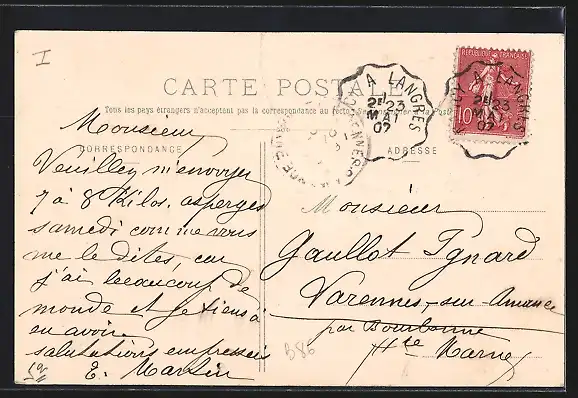 I
CARTE POSTALE
Tous les pays étrangers n'acceptent pas la correspondance au recto
CORRESPONDANCE
ADRESSE
Monsieur
Veuillez m'envoyer
7 à 8 Kilos, asperges
samedi comme vous
me le dites, car
j'ai beaucoup de
monde et je tiens à
en avoir
salutations empressées
E. Martin
Monsieur
Gaullot Ignard
Varennes-sur-Amance
par Bourbonne
Hte Marne
B86
A LANGRES
2E 23
MAI
07
REPUBLIQUE FRANÇAISE
10
A LANGRES
2E 23
MAI
07